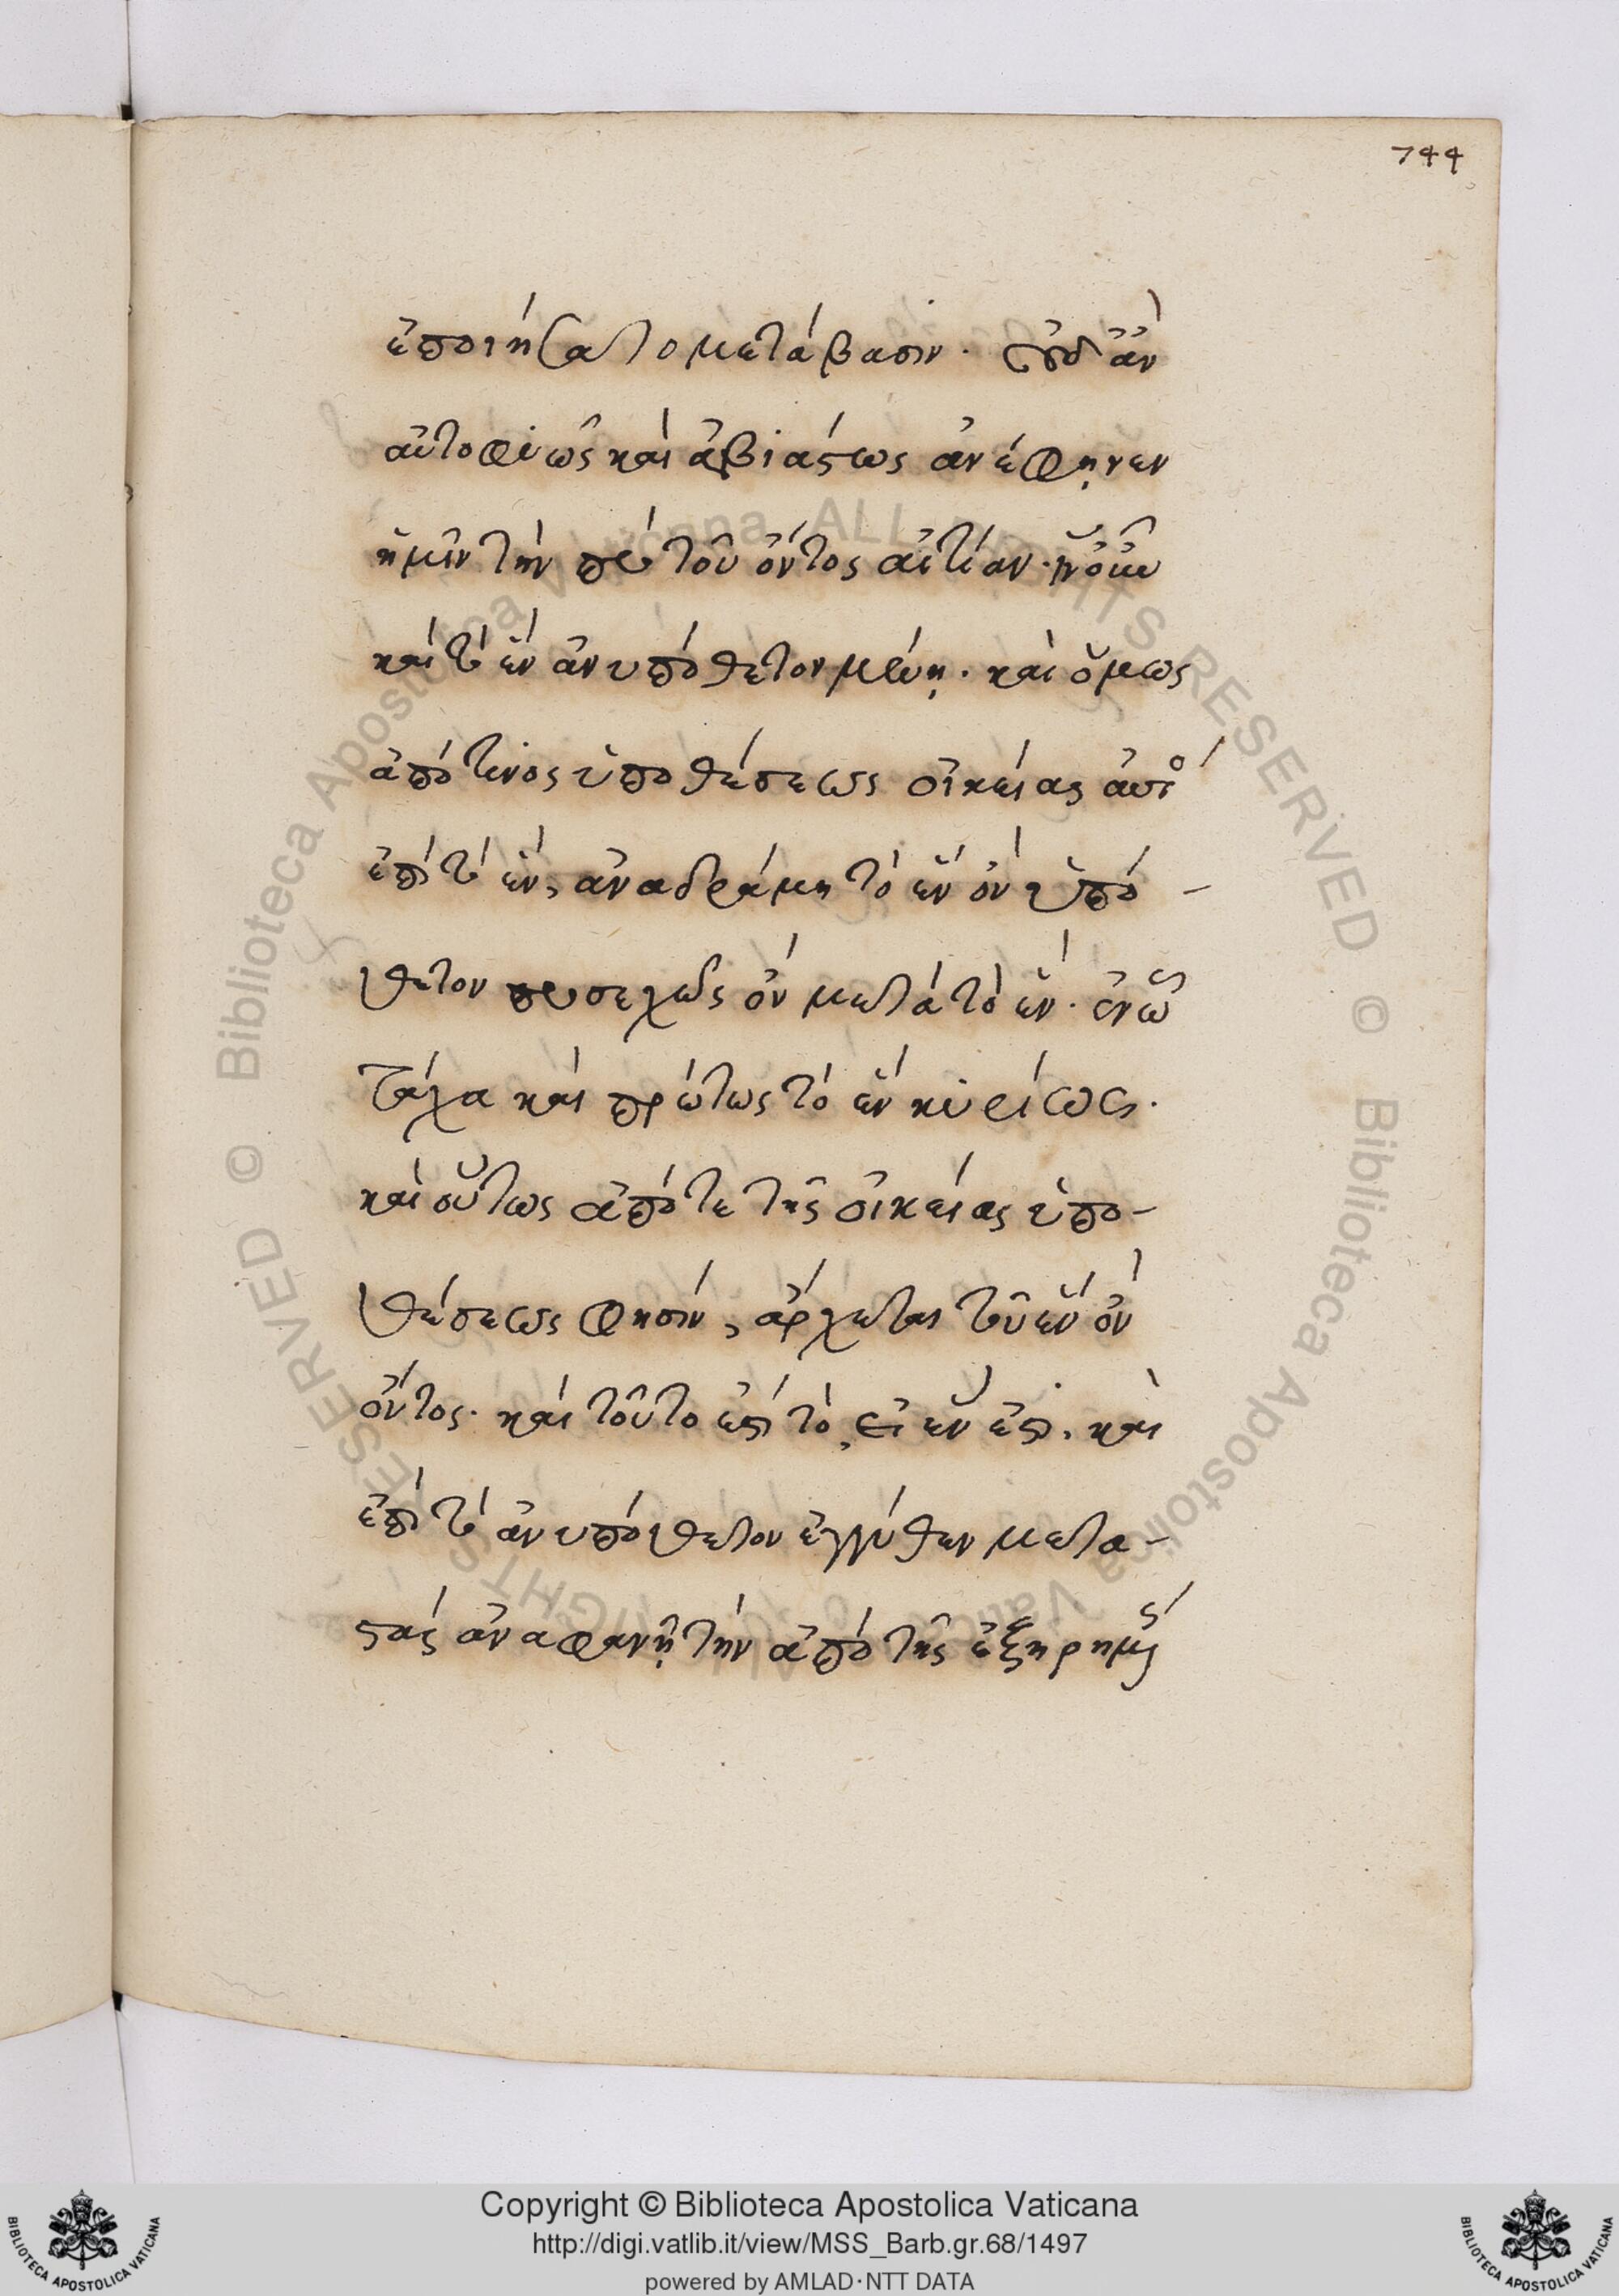 744
ἐποιήσατο μετάβασιν. οὐδ' ἂν
αὐτοφυῶς καὶ ἀβιάστως ἀνέφηνεν
ἡμῖν τὴν πρὸ τοῦ ὄντος αἰτίαν.
καὶ τὸ ἓν ἀνυπόθετον μένῃ. καὶ ὅμως
ἀπό τινος ὑποθέσεως οἰκείας αὐτὸ
ἐπὶ τὸ ἕν, ἀναδράμη τὸ ἓν ὂν ὑπό-
θετον προσεχῶς ὂν μετὰ τὸ ἕν. ἐν ᾧ
τάχα καὶ πρώτως τὸ ἓν κυρίως.
καὶ οὕτως ἀπό τε τῆς οἰκείας ὑπο-
θέσεως φησίν, ἄρχεται τοῦ ἓν ὂν
ὄντος. καὶ τοῦτο ἐπὶ τὸ, εἰ ἕν ἐστι. καὶ
ἐπὶ τὸ ἀνυπόθετον ἐγγύθεν μετα-
στὰς ἀναφανῇ τὴν ἀπὸ τῆς ἐξηρημένης
Copyright © Biblioteca Apostolica Vaticana
http://digi.vatlib.it/view/MSS_Barb.gr.68/1497
powered by AMLAD·NTT DATA
BIBLIOTECA APOSTOLICA VATICANA
BIBLIOTECA APOSTOLICA VATICANA
© Biblioteca Apostolica Vaticana ALL RIGHTS RESERVED
© Biblioteca Apostolica Vaticana ALL RIGHTS RESERVED